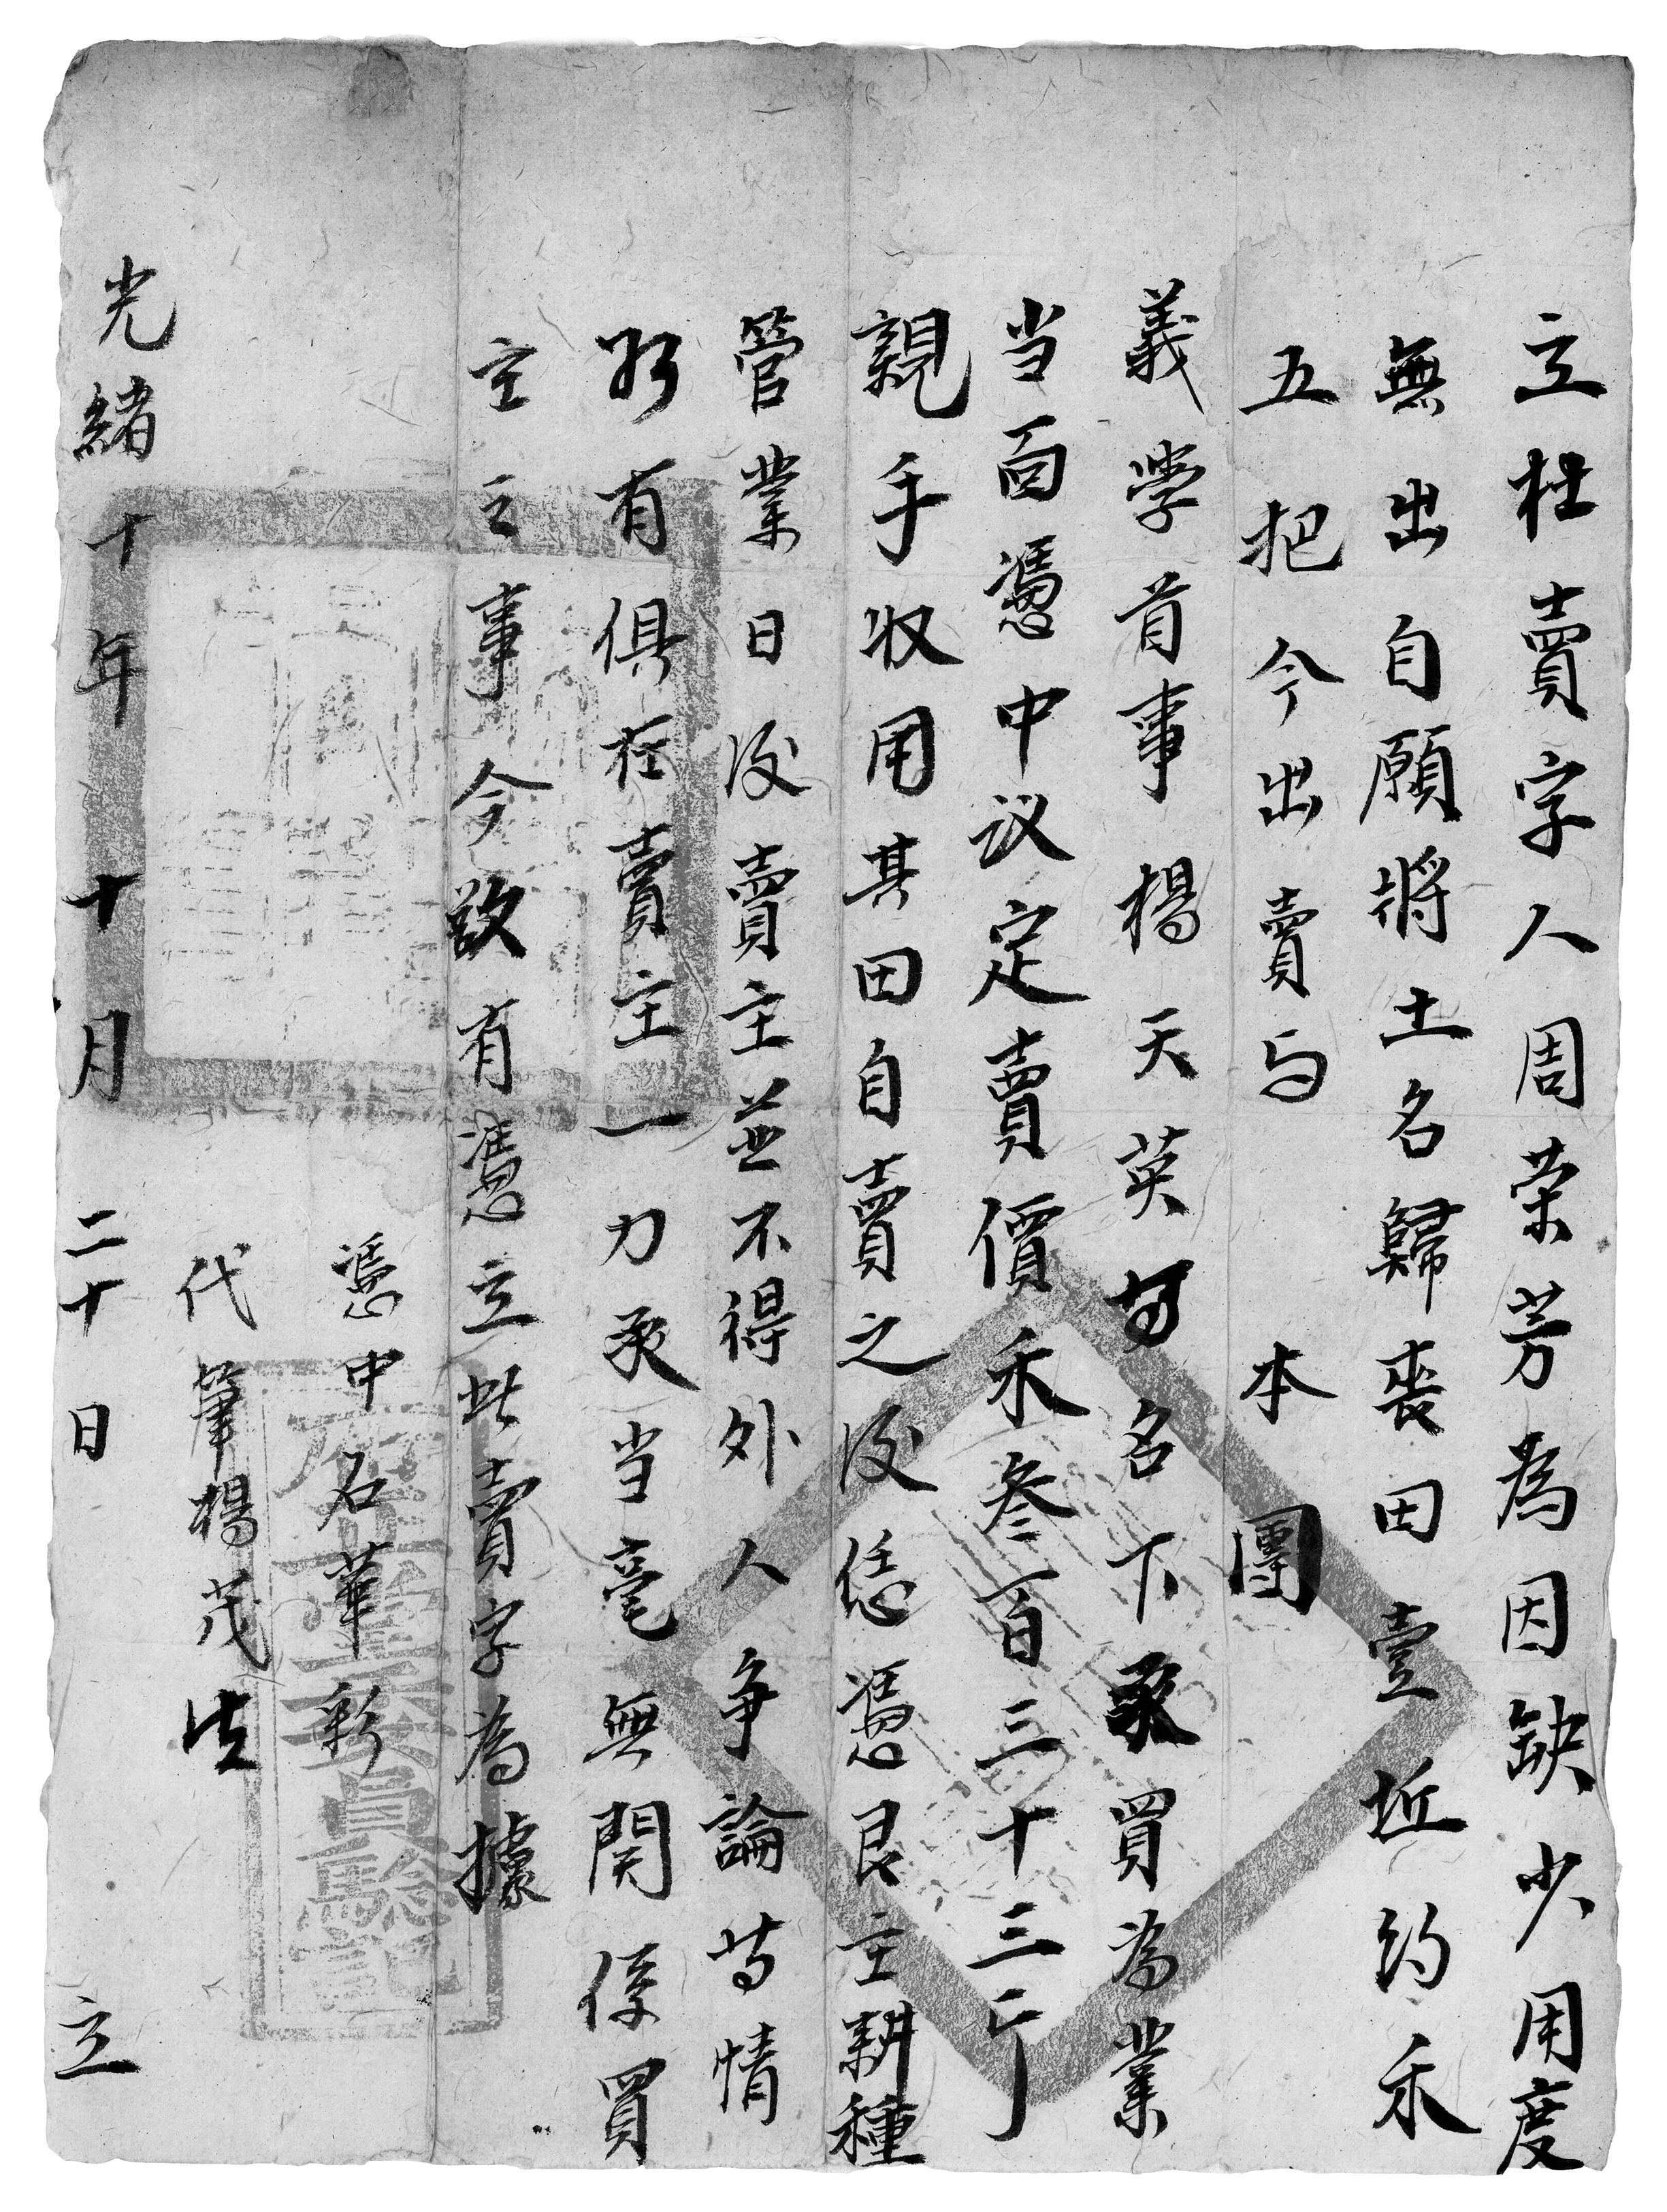 立杜賣字人周荣芳為因缺少用度
無出自願將土名歸丧田壹坵約禾
五把今出賣与 本團
義學首事楊天英 名下承買為業
当面憑中议定賣價禾叁百三十三
親手收用其田自賣之後恁憑艮主耕種
管業日後賣主並不得外人争論等情
有俱在賣主一力承当毫無関係買
主之事今欲有憑立此賣字為據
憑中石華彩
代筆楊茂
光緒十年十月二十日 立